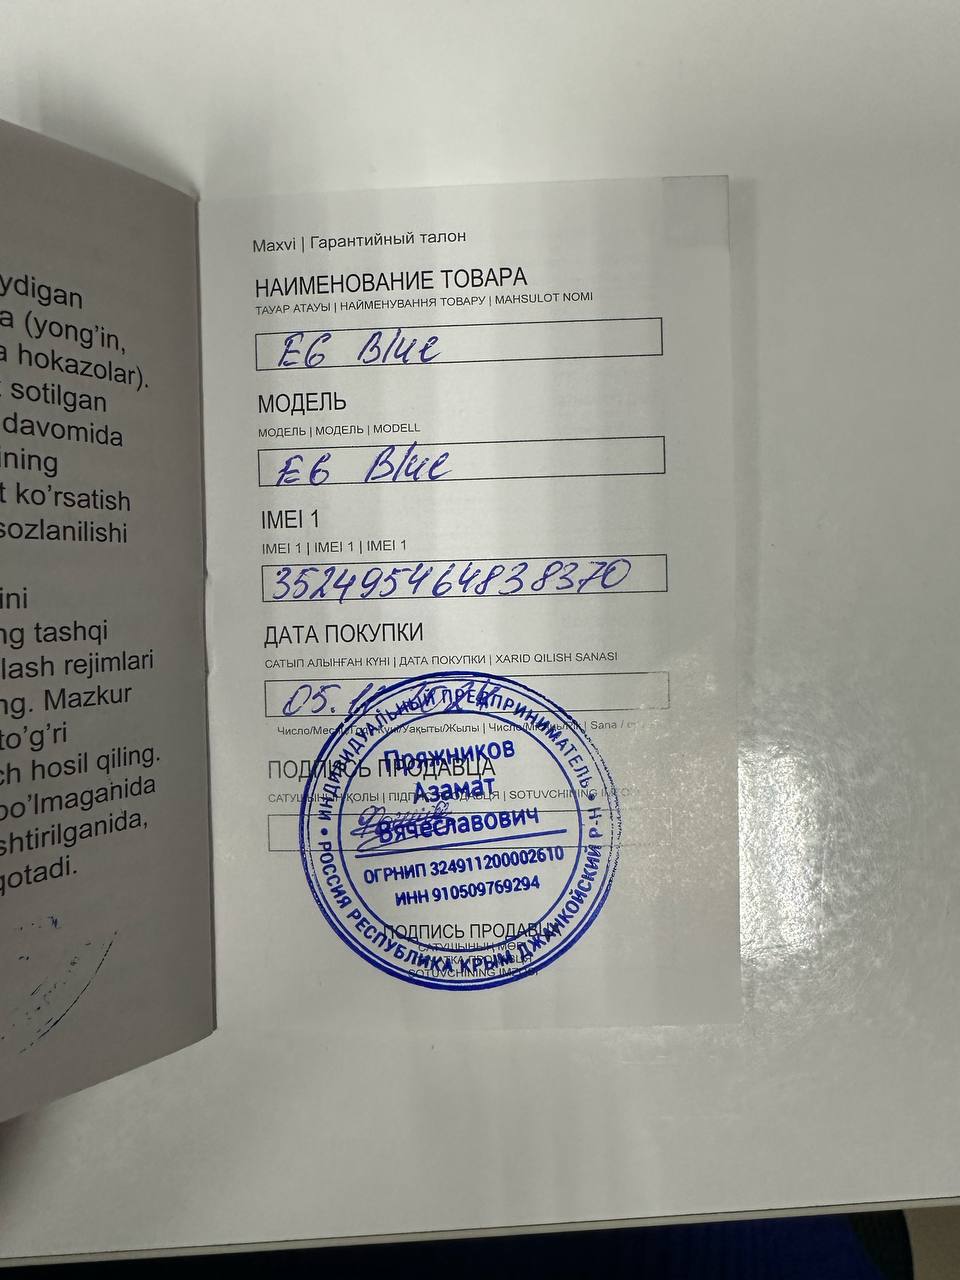 ydigan
a (yong'in,
a hokazolar).
sotilgan
davomida
ining
t ko'rsatish
sozlanilishi
ini
ng tashqi
lash rejimlari
ng. Mazkur
to'g'ri
ch hosil qiling.
bo'lmaganida
shtirilganida,
qotadi.
Maxvi | Гарантийный талон
НАИМЕНОВАНИЕ ТОВАРА
ТАУАР АТАУЫ | НАЙМЕНУВАННЯ ТОВАРУ | MAHSULOT NOMI
E6 Blue
МОДЕЛЬ
МОДЕЛЬ | МОДЕЛЬ | MODELL
E6 Blue
IMEI 1
IMEI 1 | IMEI 1 | IMEI 1
352495464838370
ДАТА ПОКУПКИ
САТЫП АЛЫНҒАН КҮНІ | ДАТА ПОКУПКИ | XARID QILISH SANASI
05.11.2024
Число/Месяц/Год Күні/Уақыты/Жылы | Sana /
ПОДПИСЬ ПРОДАВЦА
САТУШЫНЫҢ ҚОЛЫ | ПІДПИС ПРОДАВЦЯ | SOTUVCHINING
ИНДИВИДУАЛЬНЫЙ ПРЕДПРИНИМАТЕЛЬ •
РОССИЯ РЕСПУБЛИКА КРЫМ ДЖАНКОЙСКИЙ Р-Н •
Пряжников
Азамат
Вячеславович
ОГРНИП 324911200002610
ИНН 910509769294
ПОДПИСЬ ПРОДАВЦА
САТУШЫНЫҢ
SOTUVCHINING IMZOSI